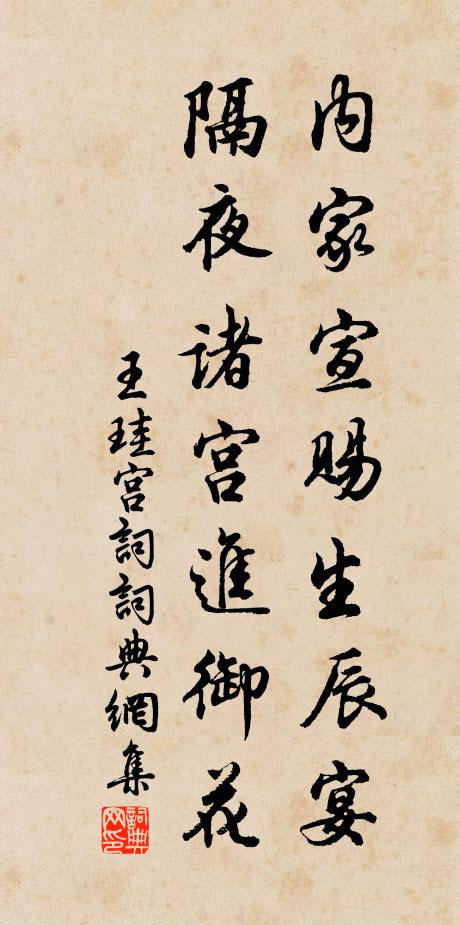 内家宣赐生辰宴
隔夜诸宫進御花
王珪宫詞詞典網集
詞典
网印